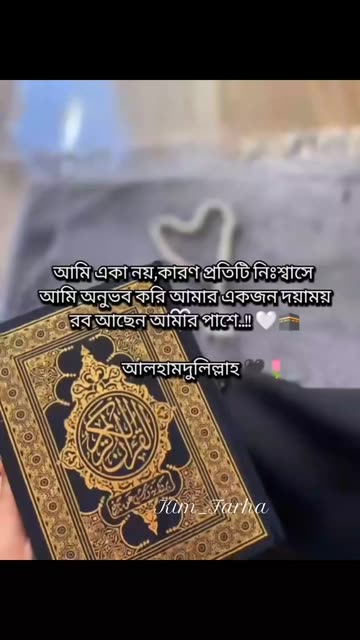 আমি একা নয়,কারণ প্রতিটি নিঃশ্বাসে
আমি অনুভব করি আমার একজন দয়াময়
রব আছেন আমার পাশে..!! 🤍🕋
আলহামদুলিল্লাহ 🖤🌷
القرآن الكريم
Kim_Farha